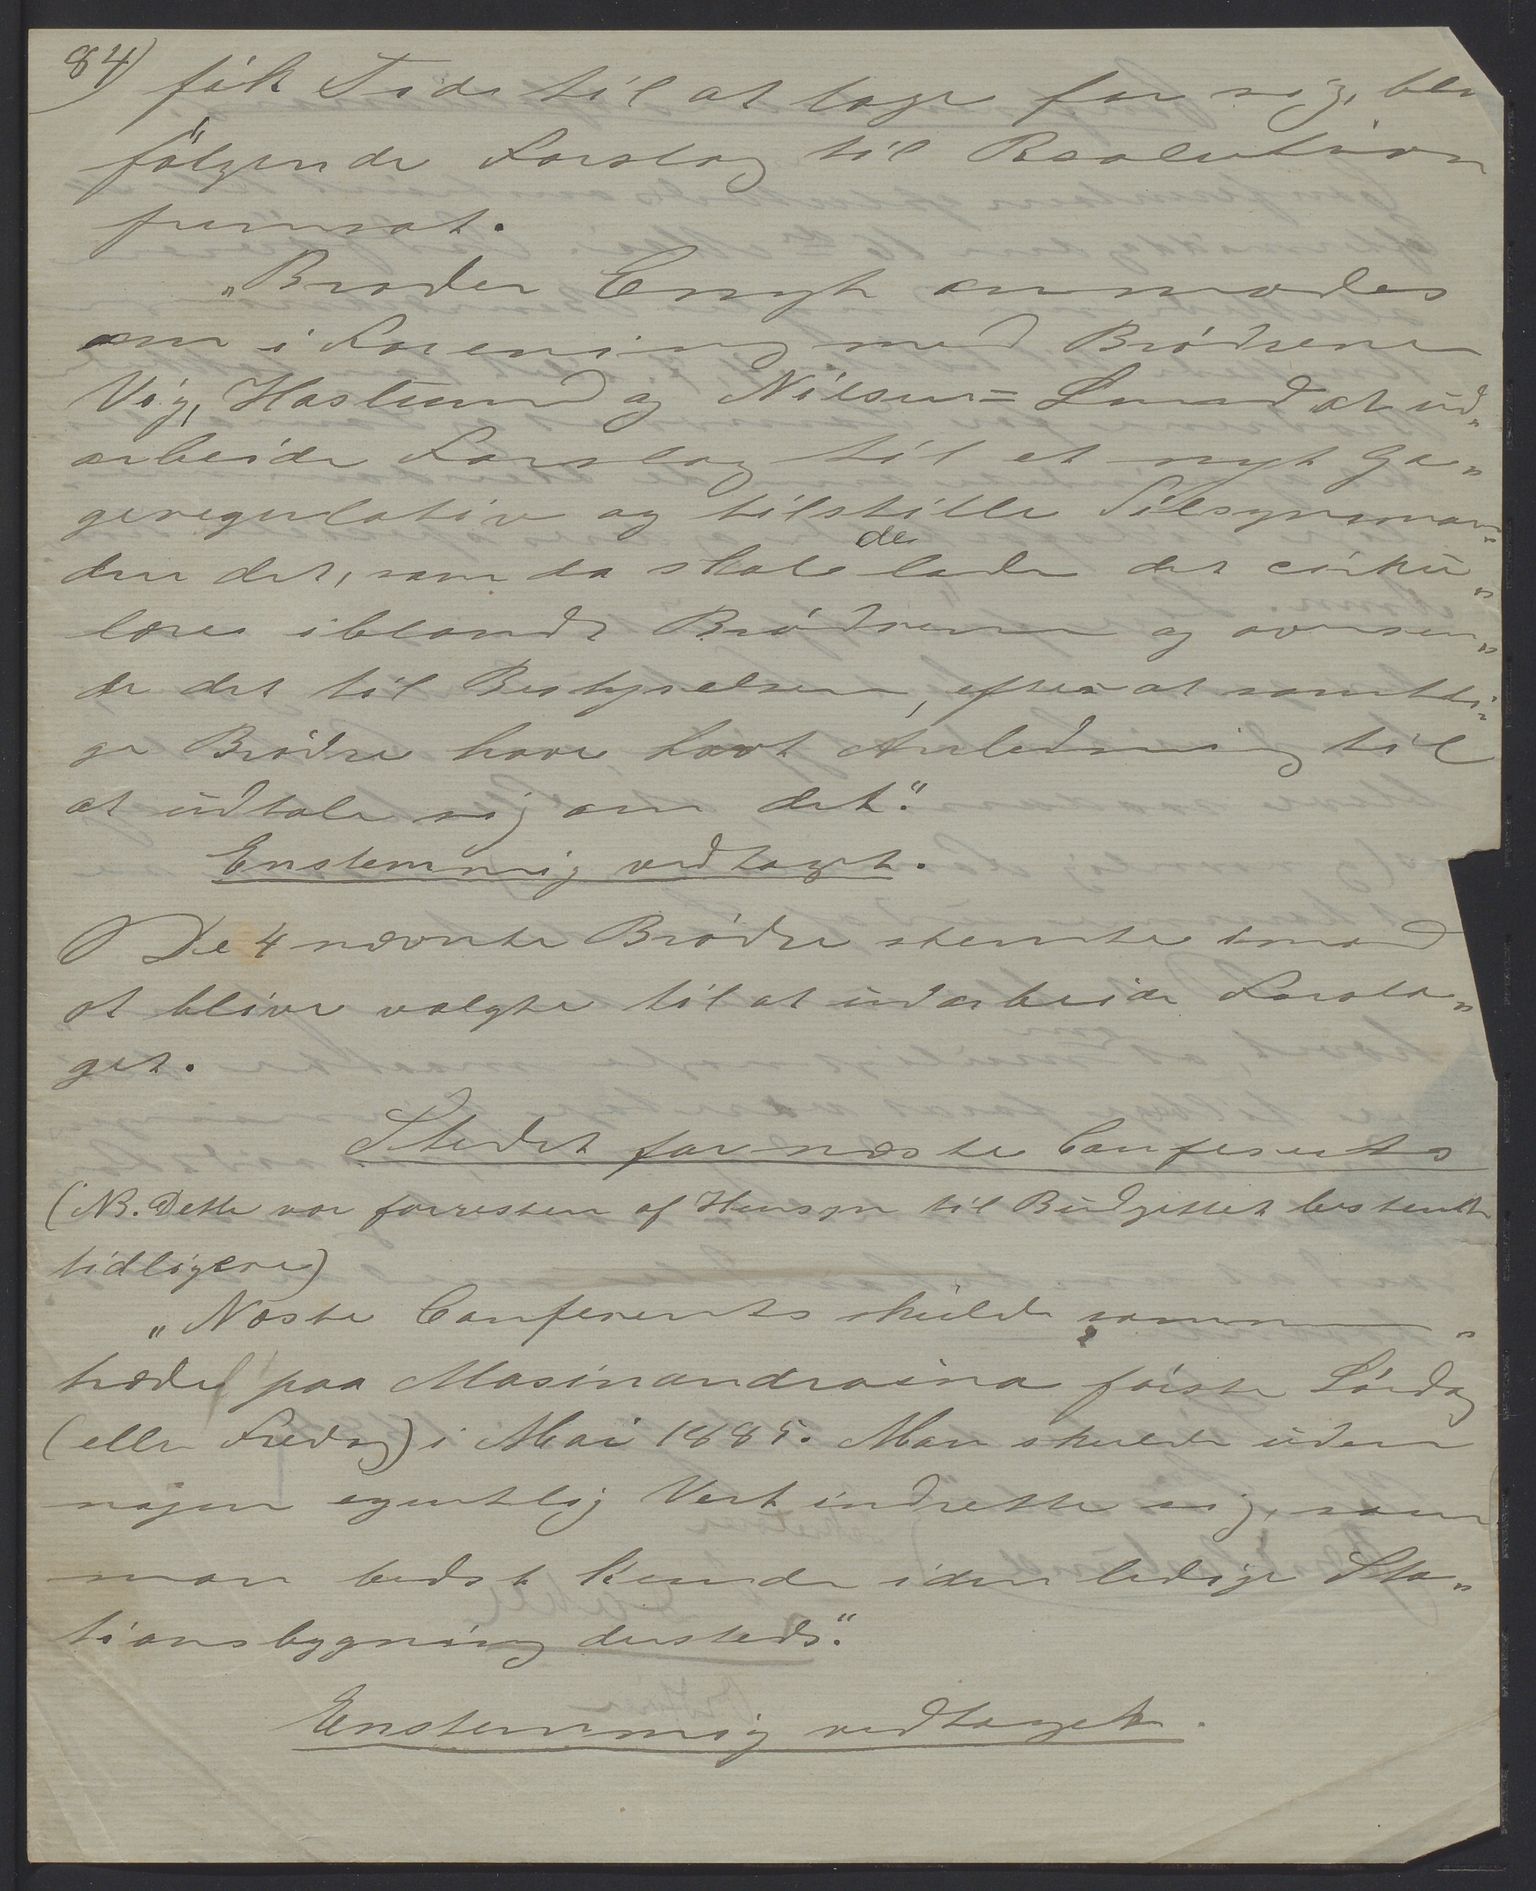 84)
fik Tide til at tage for sig, blev
følgende Forslag til Resolution
fremsat.
„Broder Engh anmodes
om i Forening med Brødrene
Vig, Haslund og Nilsen=Lund at ud„
arbeide Forslag til et nyt Ga„
geregulativ og tilstille Tilsynsman„
den det, som da skal lade det cirku„
de
lere iblandt Brødrene og oversen„
de det til Bestyrelsen, efter at samtli„
ge Brødre have havt Anledning til
at udtale sig om det.“
Enstemmig vedtaget.
De 4 nævnte Brødre stemte imod
at blive valgte til at udarbeide Forsla„
get.
Stedet for næste Conferents
(NB. Dette var forresten af Hensyn til Budgettet bestemt
tidligere)
„Næste Conferents skulde sammen„
træde paa Masinandraina første Lørdag
(eller Fredag) i Mai 1885. Man skulde uden
nogen egentlig Vert indrette sig, som
man bedst kunde i den ledige Sta„
tionsbygning dersteds.“
Enstemmig vedtaget.